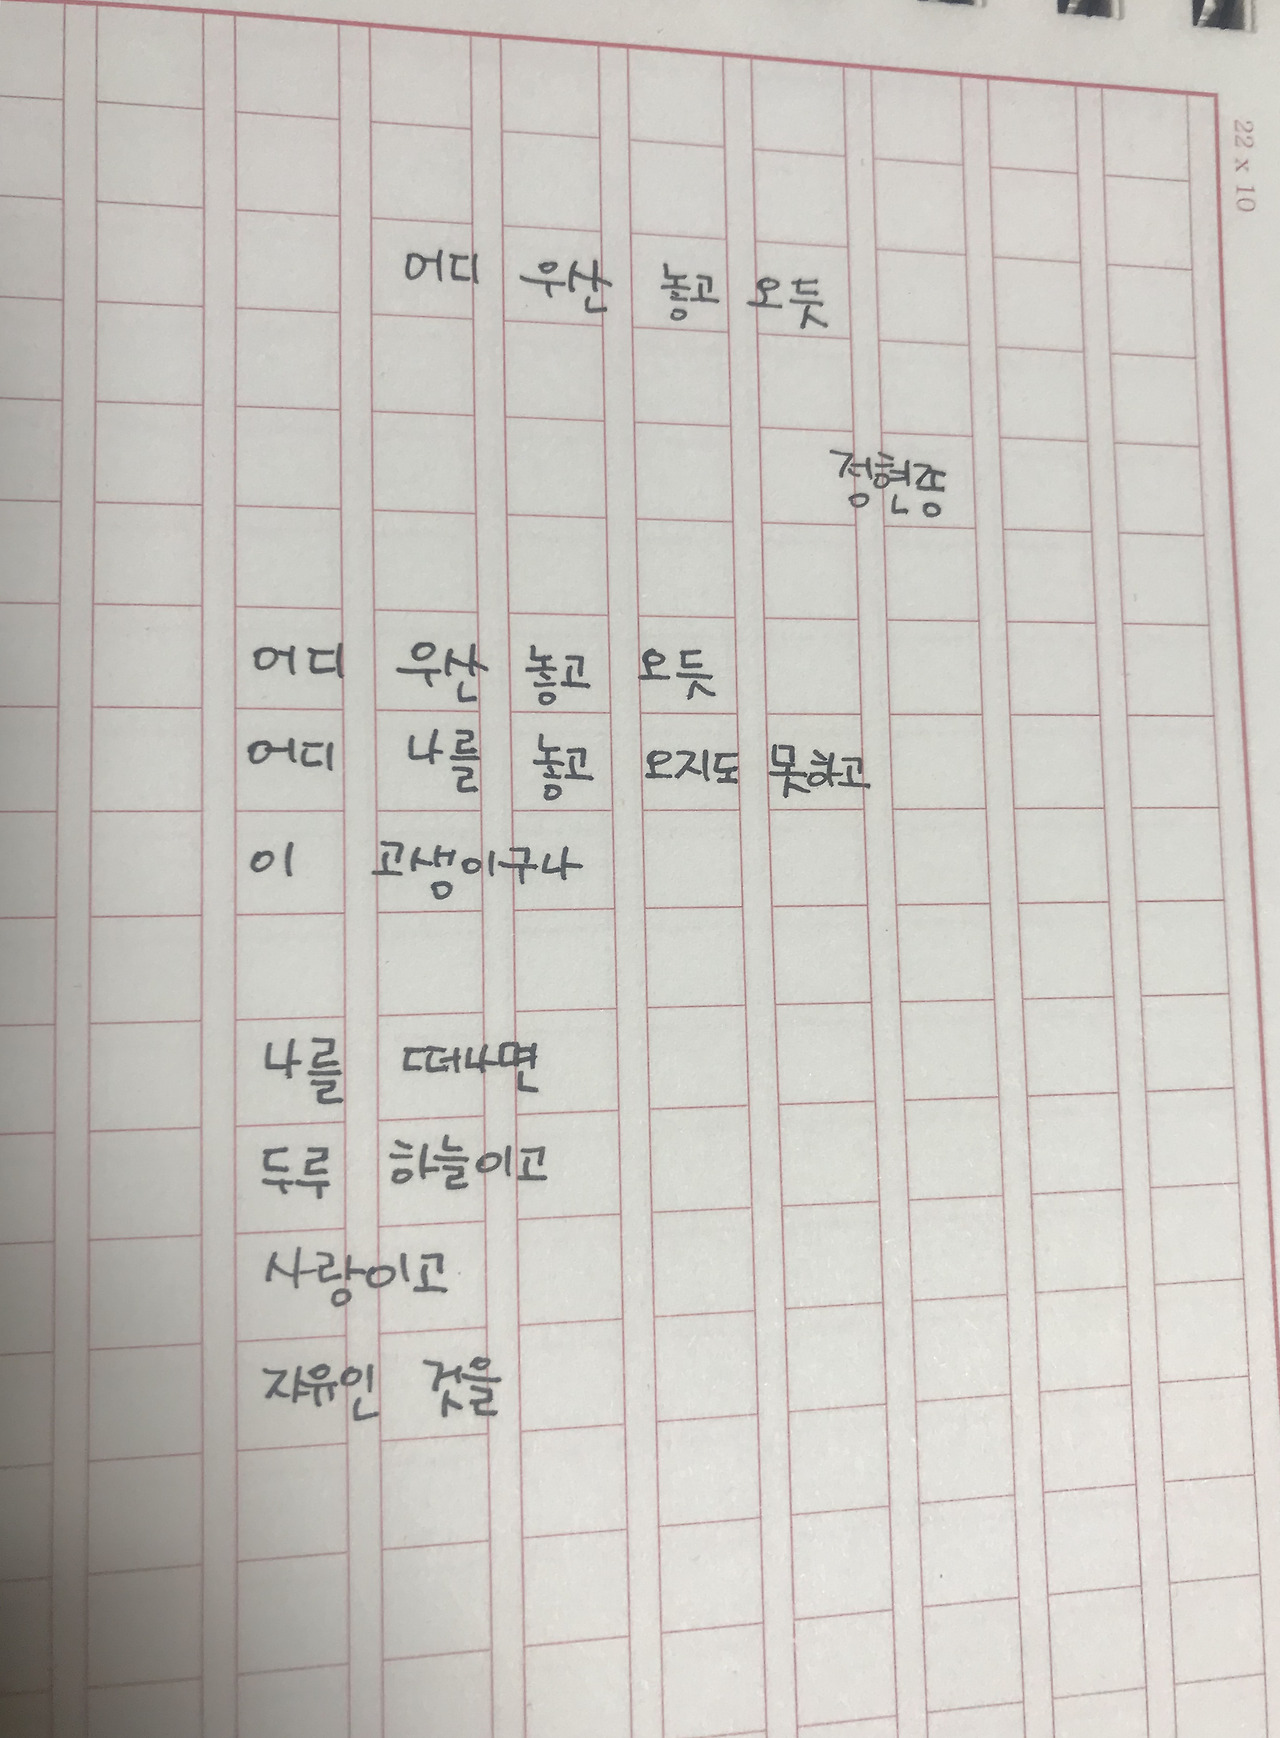 22 x 10
어디 우산 놓고 오듯
정현종
어디 우산 놓고 오듯
어디 나를 놓고 오지도 못하고
이 고생이구나
나를 떠나면
두루 하늘이고
사랑이고
자유인 것을